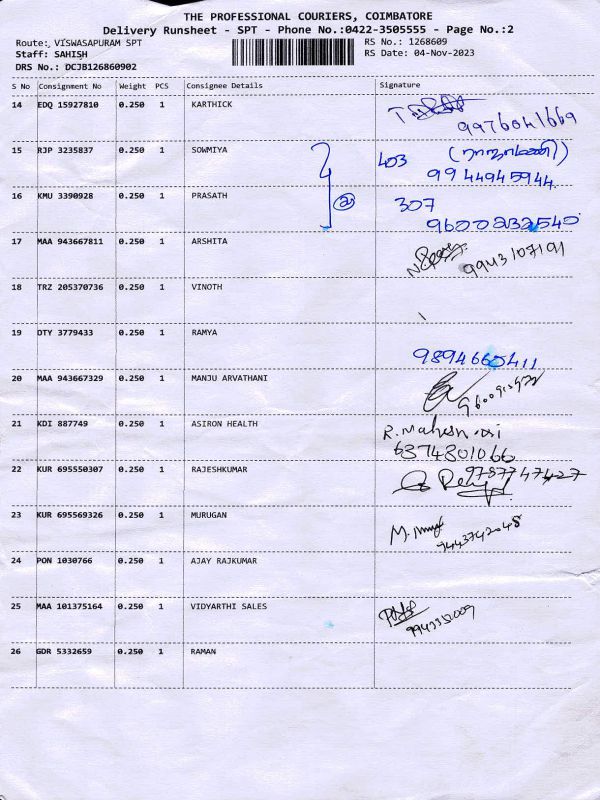 THE PROFESSIONAL COURIERS, COIMBATORE
Delivery Runsheet - SPT - Phone No.:0422-3505555 - Page No.:2
Route: VISWASAPURAM SPT
RS No.: 1268609
Staff: SAHISH
RS Date: 04-Nov-2023
DRS No.: DCJB126860902
S No Consignment No Weight PCS Consignee Details Signature
14 EDQ 15927810 0.250 1 KARTHICK
15 RJP 3235837 0.250 1 SOWMIYA 403
9944945944
16 KMU 3390928 0.250 1 PRASATH 307
9600232540
17 MAA 943667811 0.250 1 ARSHITA 9943107191
18 TRZ 205370736 0.250 1 VINOTH
19 DTY 3779433 0.250 1 RAMYA
9894660411
20 MAA 943667329 0.250 1 MANJU ARVATHANI
21 KDI 887749 0.250 1 ASIRON HEALTH
6374801066
22 KUR 695550307 0.250 1 RAJESHKUMAR 9787747427
23 KUR 695569326 0.250 1 MURUGAN
24 PON 1030766 0.250 1 AJAY RAJKUMAR
25 MAA 101375164 0.250 1 VIDYARTHI SALES
26 GDR 5332659 0.250 1 RAMAN